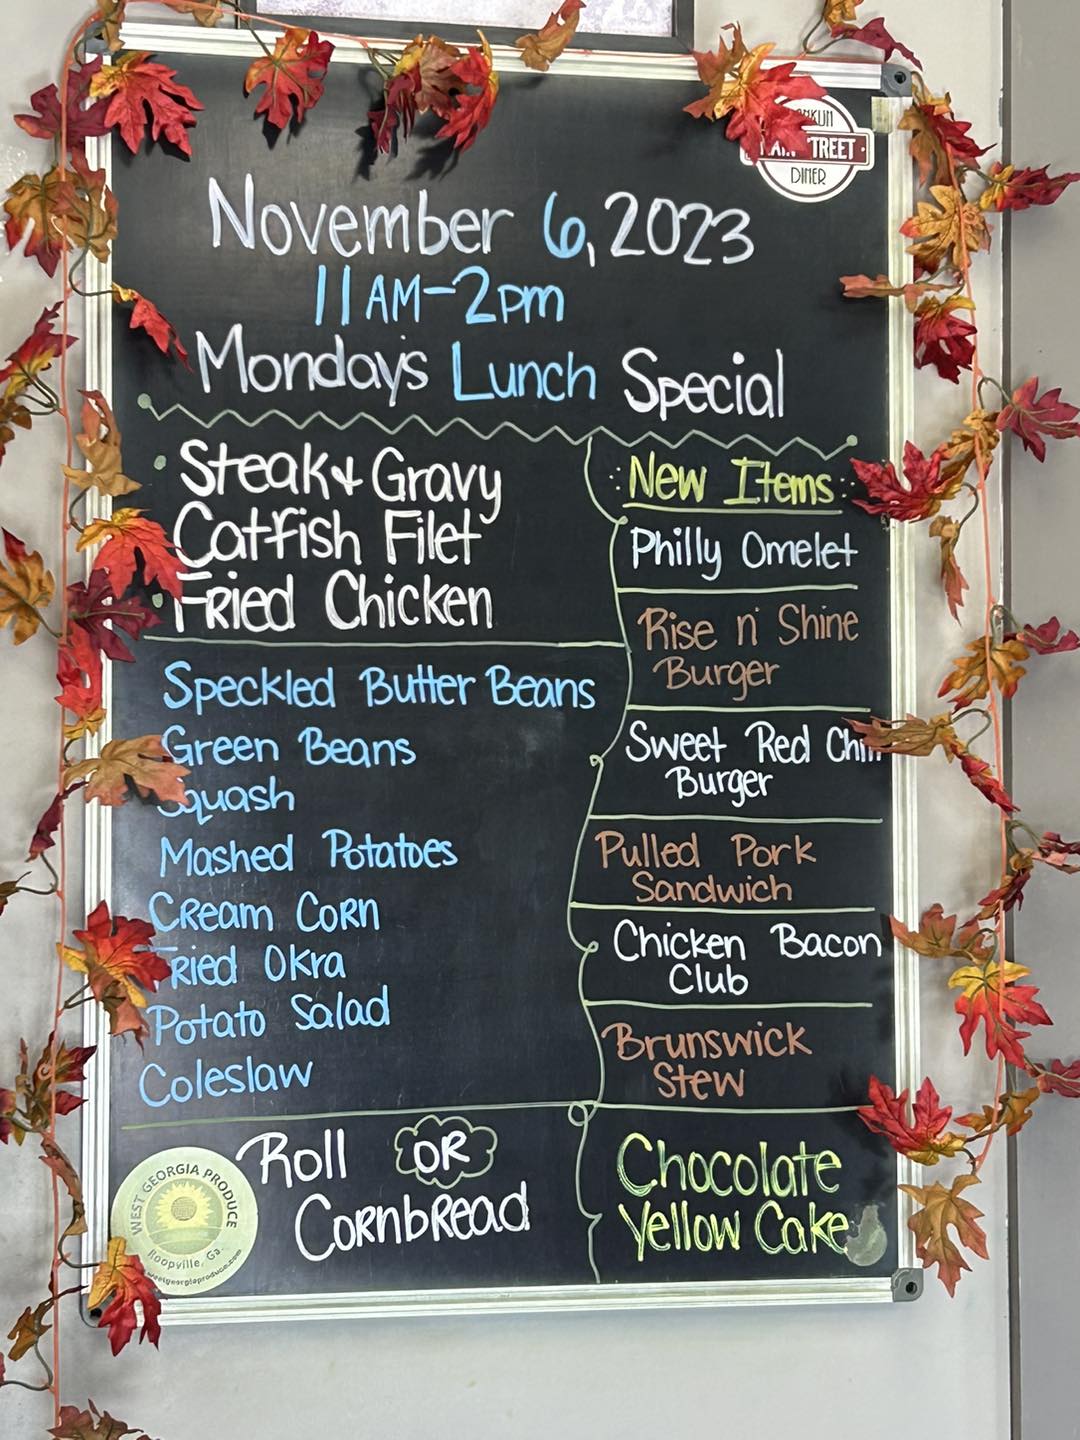 DINER
November 6, 2023
11 AM-2pm
Monday's Lunch Special
Steak & Gravy
Catfish Filet
Fried Chicken
Speckled Butter Beans
Green Beans
Squash
Mashed Potatoes
Cream Corn
Fried Okra
Potato Salad
Coleslaw
Roll OR
Cornbread
WEST GEORGIA PRODUCE
Roopville, Ga.
westgeorgiaproduce.com
New Items
Philly Omelet
Rise n' Shine
Burger
Sweet Red Chili
Burger
Pulled Pork
Sandwich
Chicken Bacon
Club
Brunswick
Stew
Chocolate
Yellow Cake